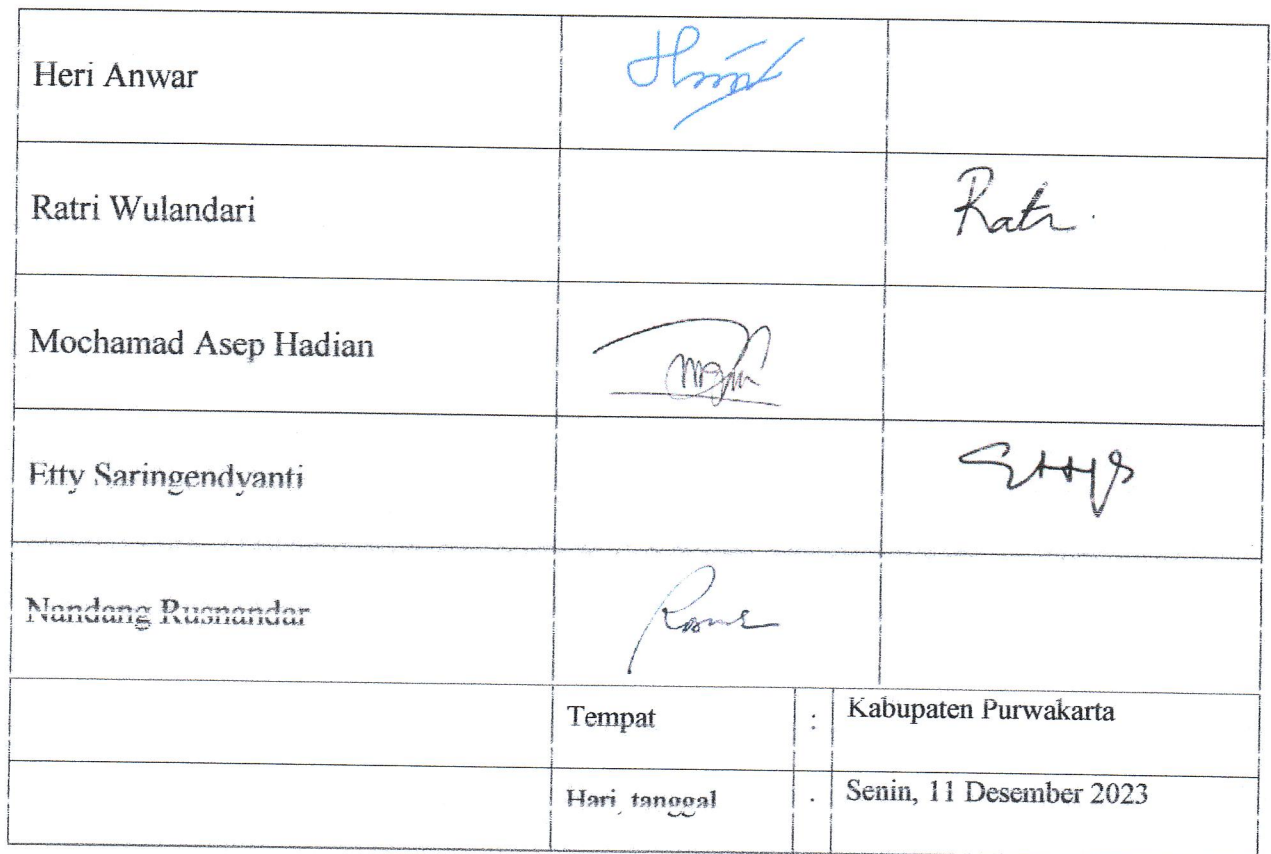 Heri Anwar
Ratri Wulandari
Ratri
Mochamad Asep Hadian
Etty Saringendyanti
Ettys
Nandang Rusnandar
Tempat : Kabupaten Purwakarta
Hari, tanggal : Senin, 11 Desember 2023